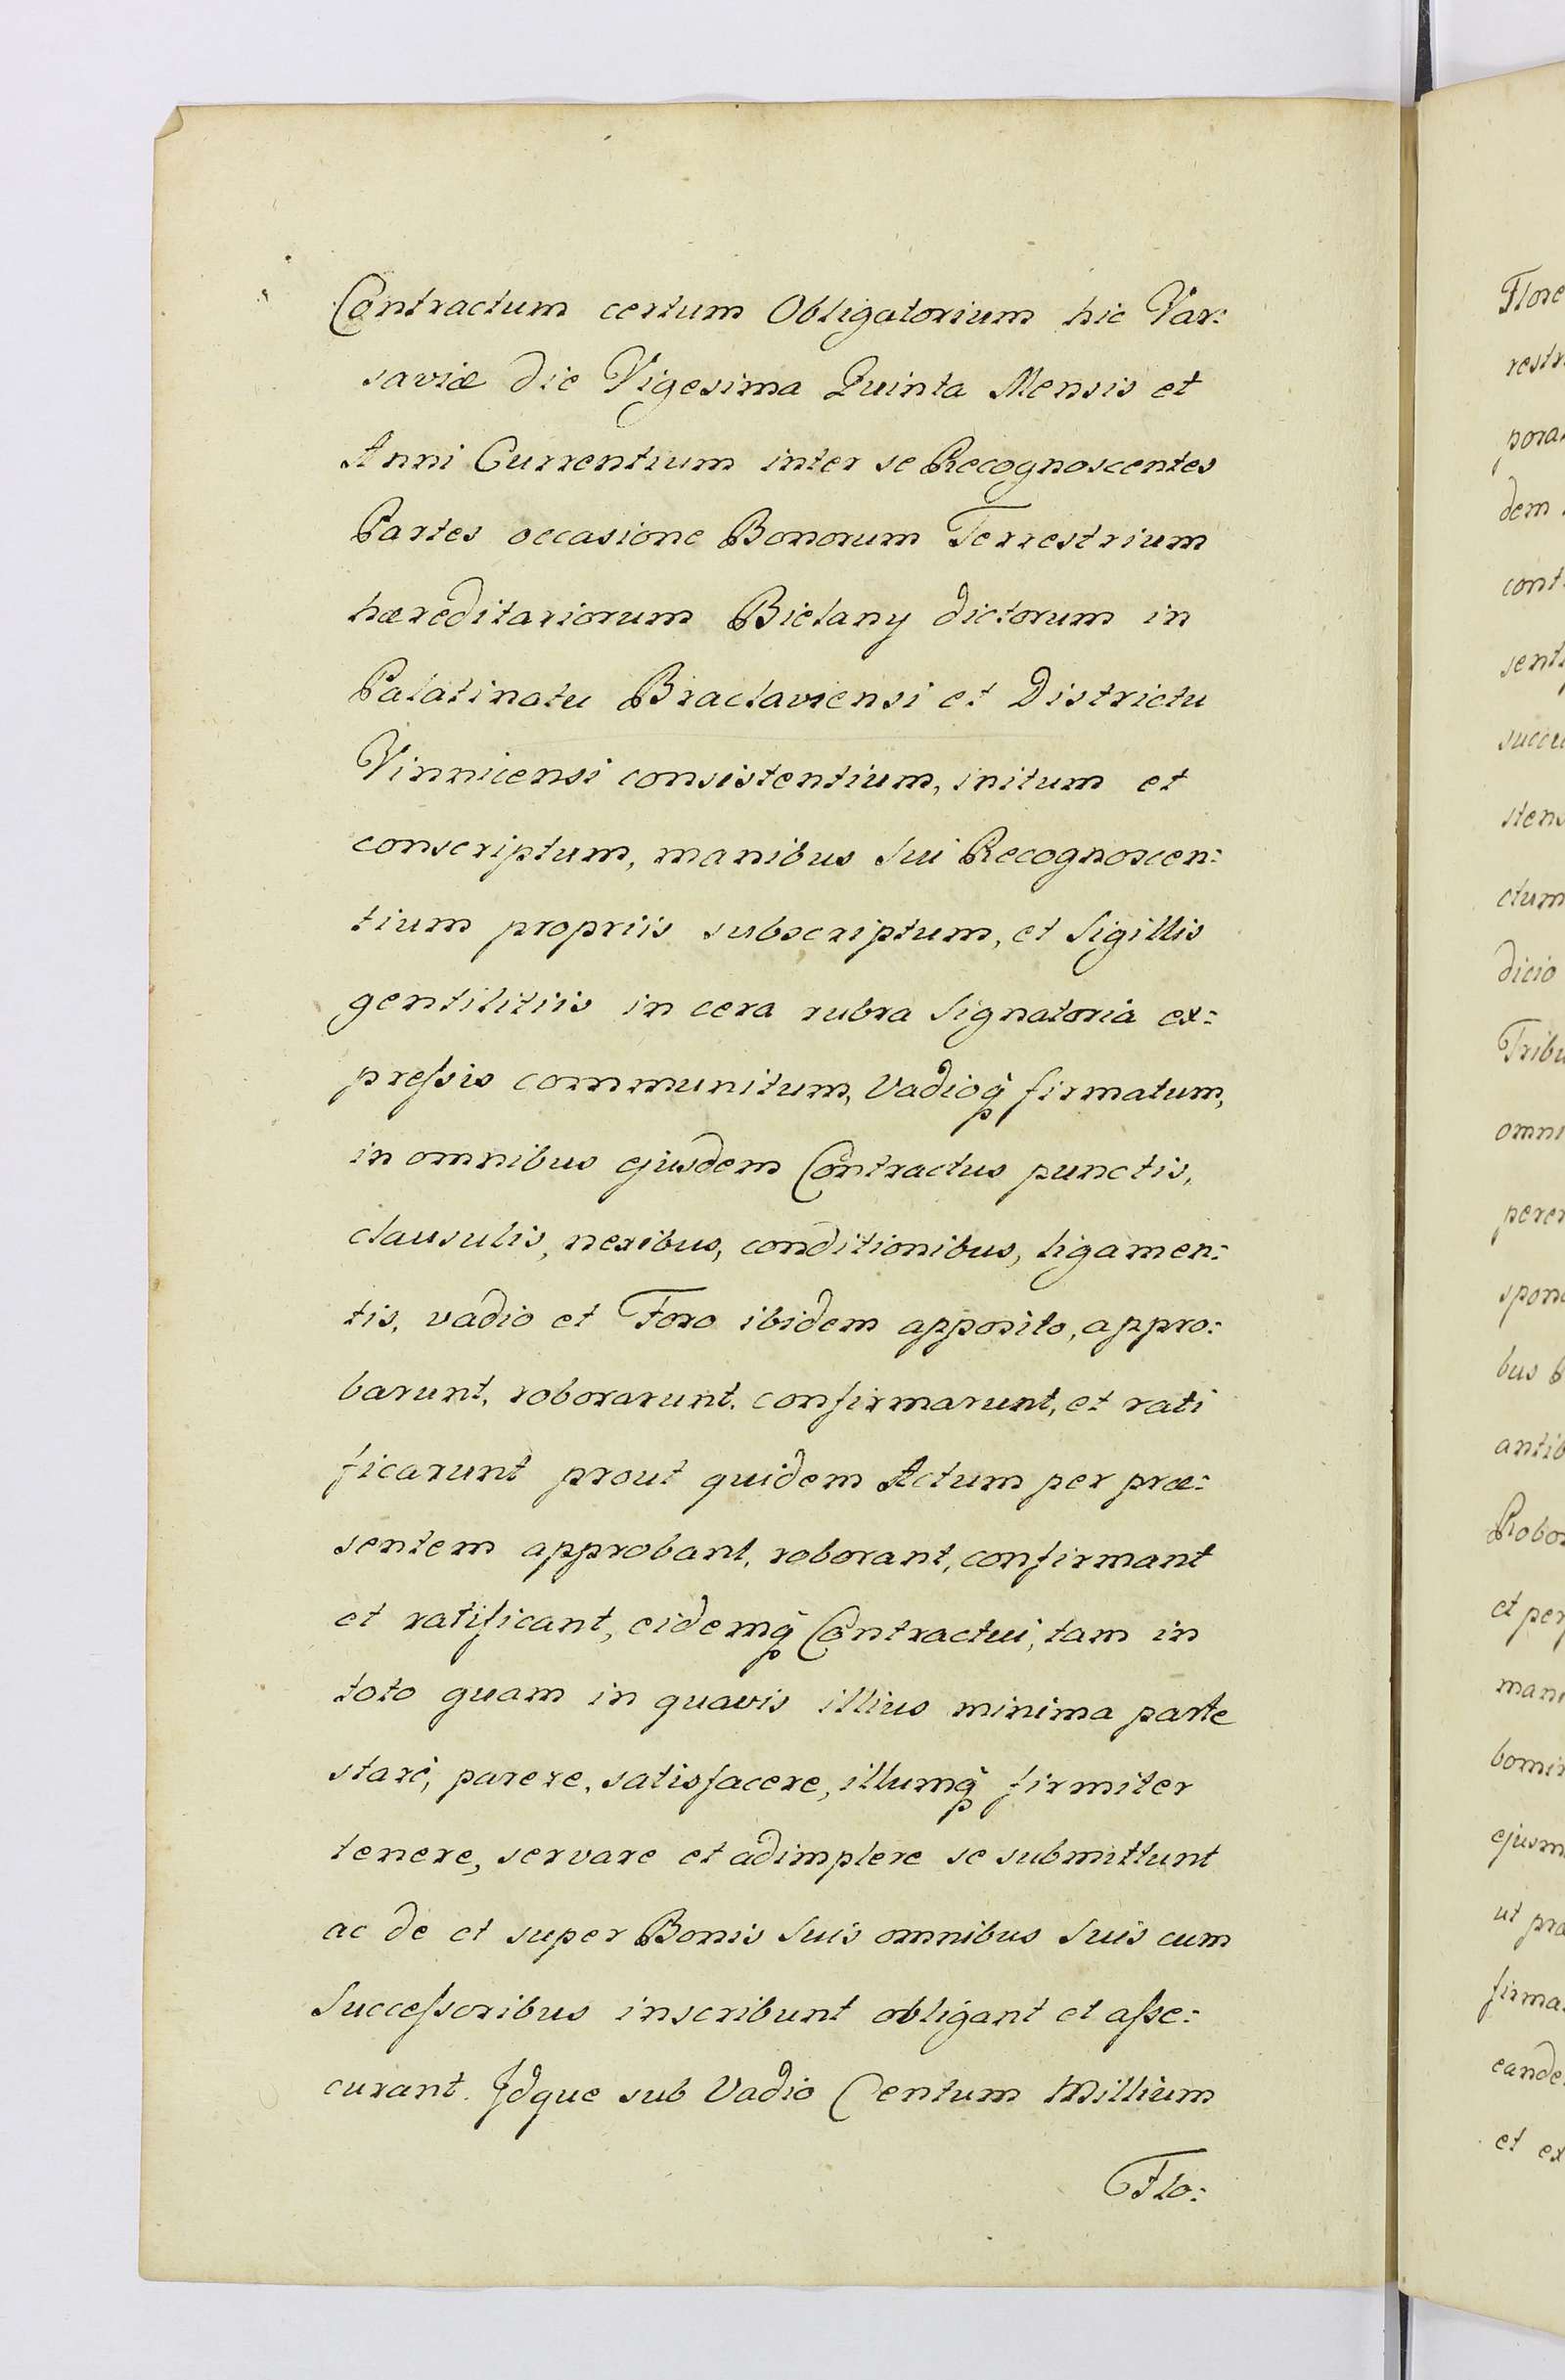 Contractum certum Obligatorium hic Var:
saviæ die Vigesima Quinta Mensis et
Anni Currentium inter se Recognoscentes
Partes occasione Bonorum Terrestrium
hæreditariorum Bielany dictorum in
Palatinatu Braclaviensi et Districtu
Vinnicensi consistentium, initum et
conscriptum, manibus sui Recognoscen:
tium propriis subscriptum, et Sigillis
gentilitiis in cera rubra signatoria ex:
preſsis communitum, Vadioq̃ firmatum,
in omnibus ejusdem Contractus punctis,
clausulis, nexibus, conditionibus, ligamen:
tis, vadio et Foro ibidem apposito, appro:
barunt, roborarunt, confirmarunt, et rati
ficarunt prout quidem Actum per præ:
sentem approbant, roborant, confirmant
et ratificant, eidemq̃ Contractui, tam in
toto quam in quavis illius minima parte
stare, parere, satisfacere, illumq̃ firmiter
tenere, servare et adimplere se submittunt
ac de et super Bonis Suis omnibus Suis cum
Succeſsoribus inscribunt obligant et aſse:
curant. Idque sub Vadio Centum Millium
Flo:
Flore
restr
pora
dem
cont
sent
succe
stens
ctum
dicio
Tribu
omni
perer
spon
bus
antib
Robor
et per
mani
bomi
ejusm
ut præ
firma
eande
et ex